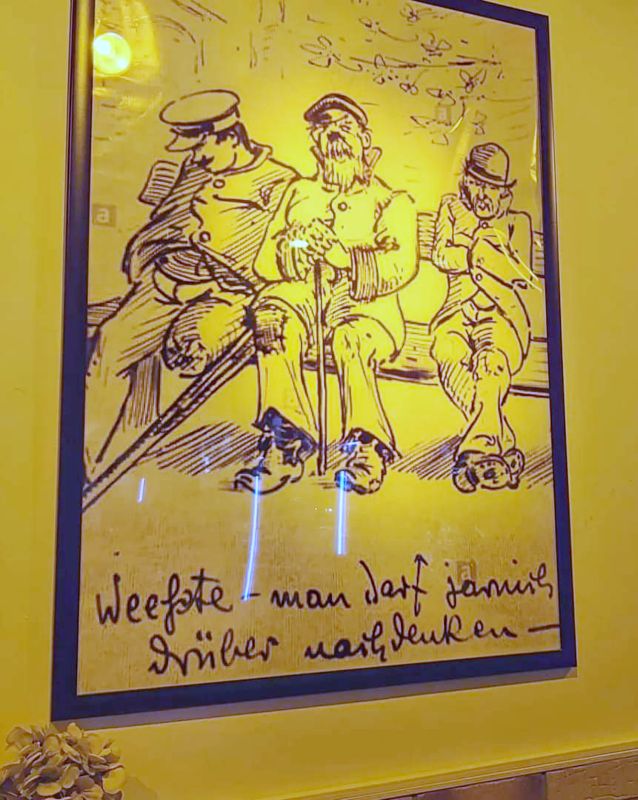 Weeßte - man darf jarnich
drüber nachdenken -
a
a
a